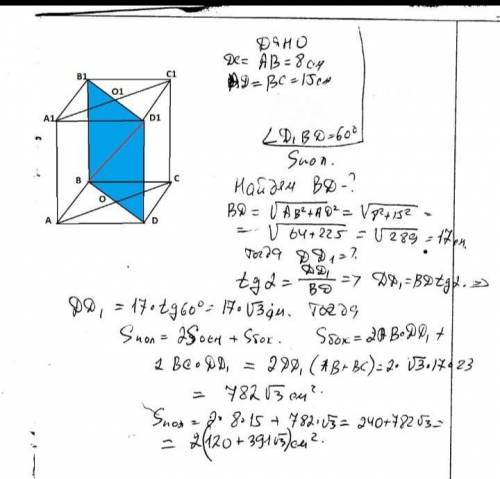 B1
C1
O1
A1
D1
B
C
O
A
D
Дано
DC = AB = 8 см
AD = BC = 15 см
∠D₁BD = 60°
Sпол.
Найдем BD - ?
BD = √AB² + AD² = √8² + 15² =
= √64 + 225 = √289 = 17 см.
тогда DD₁ = ?
tg α = DD₁/BD => DD₁ = BD tg α. =>
DD₁ = 17 · tg 60° = 17 · √3 дм. Тогда
Sпол = 2Sосн + Sбок. Sбок = 2AB·DD₁ +
2 BC·DD₁ = 2DD₁ (AB + BC) = 2 · √3 · 17 · 23
= 782√3 см².
Sпол = 2 · 8 · 15 + 782 · √3 = 240 + 782√3 =
= 2(120 + 391√3) см².